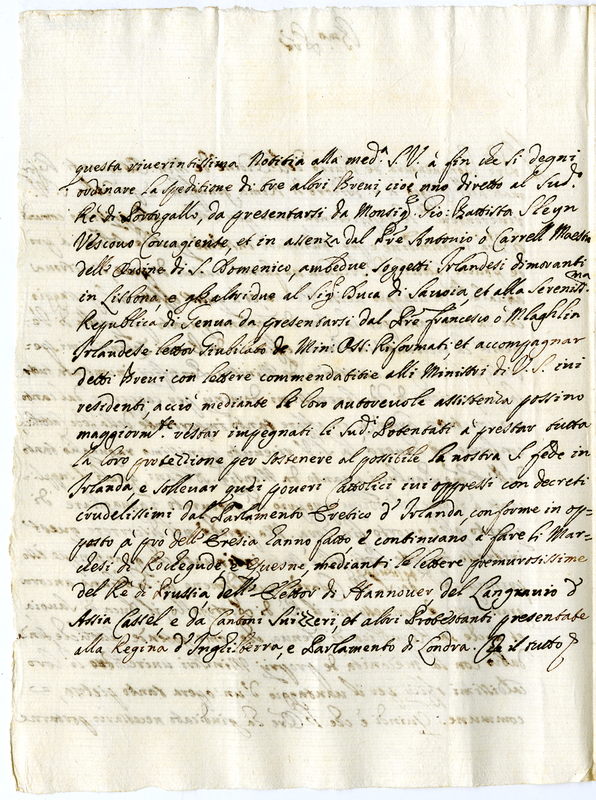 questa riverintissima Notitia alla med.ª S. V. à fin che si degni
ordinare la speditione di tre altri Brevi, cioè uno diretto al Sud.º
Rè di Portogallo, da presentarsi da Monsig.r Gio: Battista Sleyn
Vescovo Corcagiente, et in assenza dal Pre Antonio ò Carrell Maestro
dell' Ordine di S. Domenico, ambedue soggetti Irlandesi dimoranti
in Lisbona, e gl' altri due al Sig.r Duca di Savoia, et alla Sereniss.ma
Republica di Genua da presentarsi dal Pre francesco ò Mlaghlin
Irlandese lettor Giubilato de Min: Oss: Riformati; et accompagnar
detti Brevi con lettere commendatitie alli Ministri di V. S. ivi
residenti, acciò mediante le loro autorevole assistenza possino
maggiorm.te restar impegnati li Sud.i Potentati à prestar tutta
la loro protezzione per sostenere al possibile la nostra S. fede in
Irlanda, e sollevar quei poveri Cattolici ivi oppressi con decreti
crudelissimi dal Parlamento Eretico d' Irlanda, conforme in op=
posto à prò dell' Eresia hanno fatto è continuano à fare li Mar=
chesi di Rochegude è Quesne, medianti le lettere premurosissime
del Rè di Prussia, dell' Elettor di Hannover del Langravio d'
Assia Cassel, e da Cantoni Suizzeri, et altri Protestanti presentate
alla Regina d' Inghilterra, e Parlamento di Londra. Che il tutto